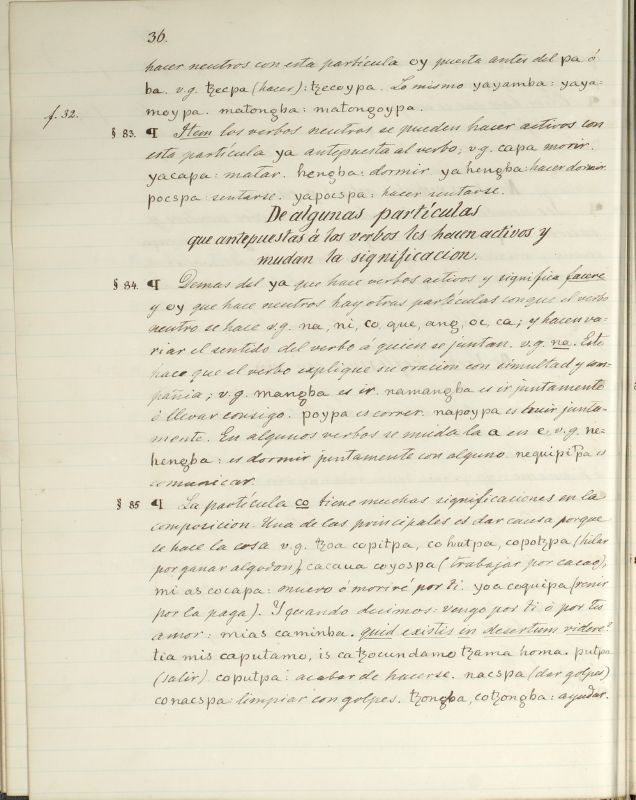 36.
hacer neutros con esta partícula oy puesta antes del pa ó
ba. v.g. tzecpa (hacer): tzecoypa. Lo mismo yayamba: yaya=
moypa. matongba: matongoypa.
f. 32.
§ 83. ¶ Item los verbos neutros se pueden hacer activos con
esta partícula ya antepuesta al verbo; v.g. capa morir.
yacapa: matar. hengba: dormir yahengba: hacer dormir.
pocspa: sentarse. yapocspa: hacer sentarse.
De algunas partículas
que antepuestas á los verbos les hacen activos y
mudan la significacion.
§ 84. ¶ Demas del ya que hace verbos activos y significa facere
y oy que hace neutros hay otras partículas con que el verbo
neutro se hace v.g. na, ni, co, que, ang, oc, ca; y hacen va=
riar el sentido del verbo á quien se juntan. v.g. na. Este
hace que el verbo explique su oracion con simultad y com=
pañia; v.g. mangba es ir. namangba es ir juntamente
ó llevar consigo. poypa es correr. napoypa es huir junta=
mente. En algunos verbos se muda la a en e, v.g. ne=
hengba: es dormir juntamente con alguno. nequipitpa es
comunicar.
§ 85 ¶ La partícula co tiene muchas significaciones en la
composicion. Una de las principales es dar causa porque
se hace la cosa v.g. tzoa copitpa, cohutpa, copotzpa (hilar
por ganar algodon), cacaua coyospa (trabajar por cacao),
mi as cocapa: muero ó moriré por ti. yoa coquipa (venir
por la paga). Y quando decimos: vengo por ti ó por tu
amor: mias caminba. quid existis in desertum videre?
tia mis caputamo, is catzocundamo tzama homa. putpa
(salir) coputpa: acabar de hacerse. nacspa (dar golpes)
conacspa: limpiar con golpes. tzongba, cotzongba: ayudar.